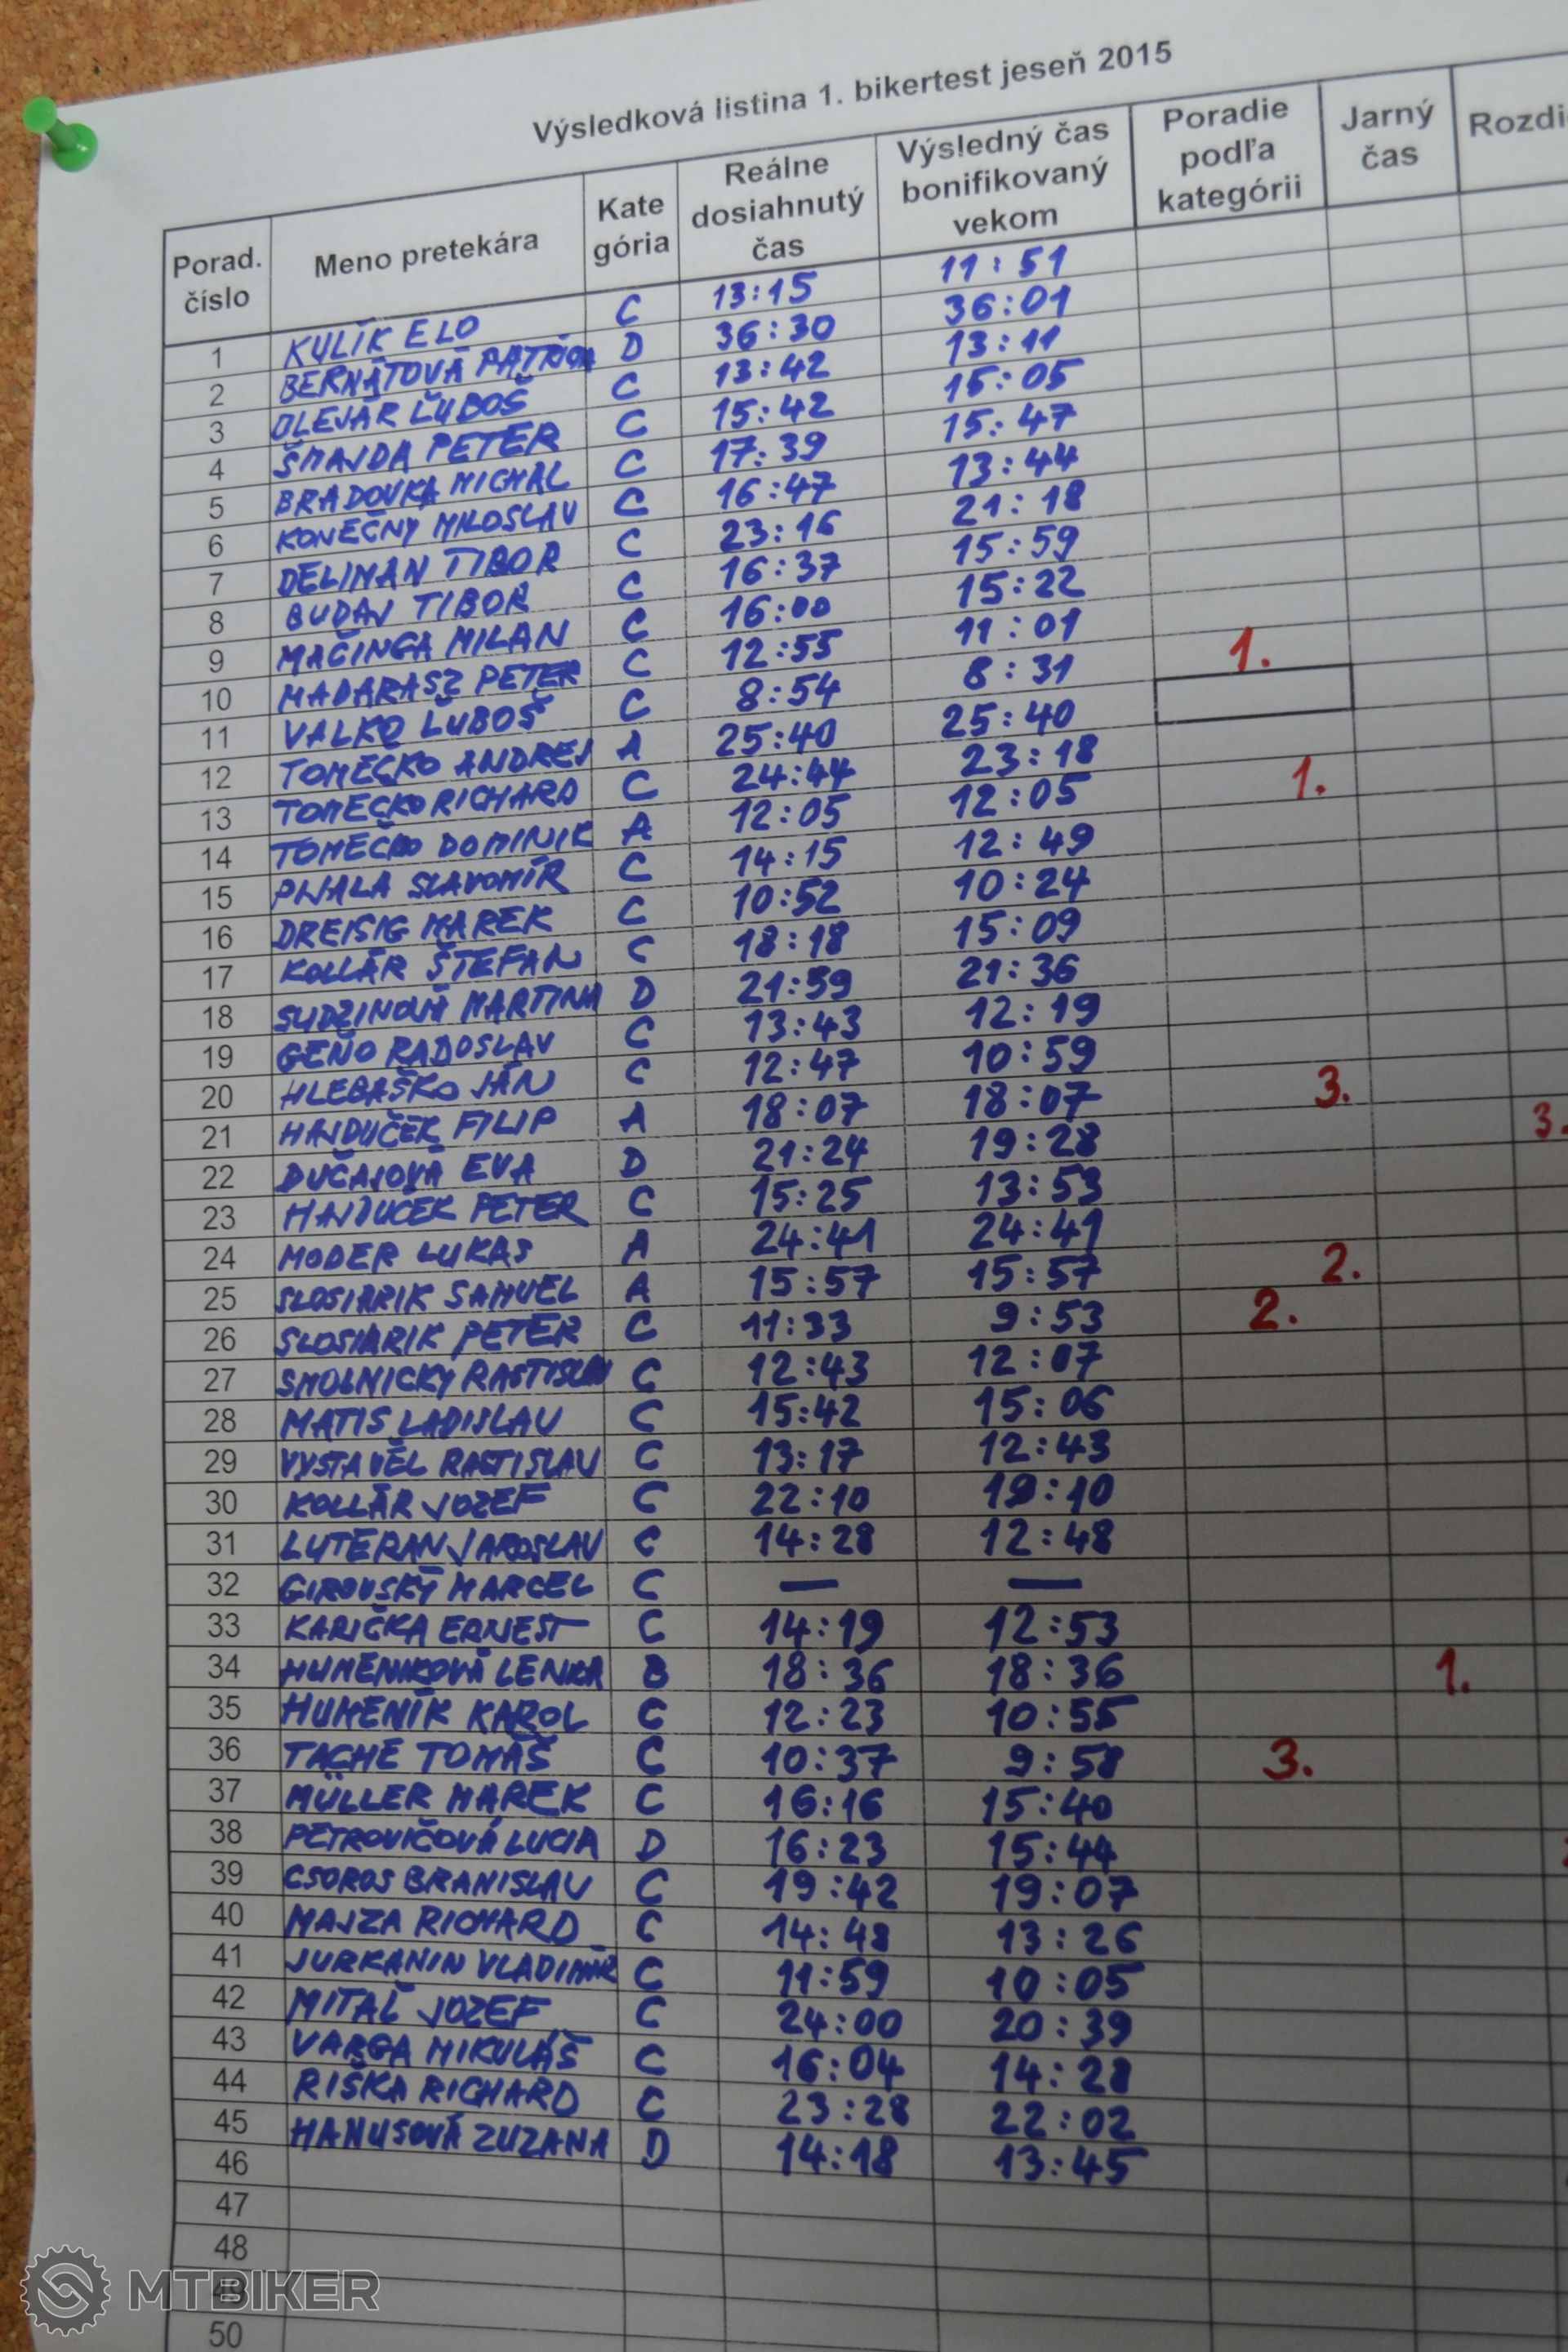 Výsledková listina 1. bikertest jeseň 2015
Porad. číslo Meno pretekára Kate gória Reálne dosiahnutý čas Výsledný čas bonifikovaný vekom Poradie podľa kategórii Jarný čas Rozdi
1 KULÍK ELO C 13:15 11:51
2 BERNÁTOVÁ D 36:30 36:01
3 OLEJÁR ĽUBOŠ C 13:42 13:11
4 ŠMAJDA PETER C 15:42 15:05
5 BRADOVKA MICHAL C 17:39 15:47
6 KONEČNY MILOSLAV C 16:47 13:44
7 DELIMAN TIBOR C 23:16 21:18
8 BUDAJ TIBOR C 16:37 15:59
9 MAČINGA MILAN C 16:00 15:22
10 MADARASZ PETER C 12:55 11:01
11 VALKO ĽUBOŠ C 8:54 8:31 1.
12 TOMEČKO ANDREJ A 25:40 25:40
13 TOMEČKO RICHARD C 24:44 23:18
14 TOMEČKO DOMINIK A 12:05 12:05 1.
15 SLAVOMÍR C 14:15 12:49
16 DREISIG MAREK C 10:52 10:24
17 KOLLÁR ŠTEFAN C 18:18 15:09
18 SUDZINOVÁ MARTINA D 21:59 21:36
19 GEŇO RADOSLAV C 13:43 12:19
20 HLEBAŠKO JÁN C 12:47 10:59
21 HAJDUČEK FILIP A 18:07 18:07 3.
22 DUČAJOVÁ EVA D 21:24 19:28 3.
23 HAJDUČEK PETER C 15:25 13:53
24 MODER LUKAS A 24:41 24:41
25 SLOSIARIK SAMUEL A 15:57 15:57 2.
26 SLOSIARIK PETER C 11:33 9:53 2.
27 SMOLNICKY RASTISLAV C 12:43 12:07
28 MATIS LADISLAV C 15:42 15:06
29 VYSTAVĚL RASTISLAV C 13:17 12:43
30 KOLLÁR JOZEF C 22:10 19:10
31 LUTERAN JAROSLAV C 14:28 12:48
32 GIROVSKÝ MARCEL C — —
33 KARIČKA ERNEST C 14:19 12:53
34 HUMENIKOVÁ LENKA B 18:36 18:36 1.
35 HUMENÍK KAROL C 12:23 10:55
36 TACHE TOMÁŠ C 10:37 9:58 3.
37 MÜLLER MAREK C 16:16 15:40
38 PETROVIČOVÁ LUCIA D 16:23 15:44
39 CSOROS BRANISLAV C 19:42 19:07
40 MAJZA RICHARD C 14:48 13:26
41 JURKANIN VLADIMÍR C 11:59 10:05
42 MITAĽ JOZEF C 24:00 20:39
43 VARGA MIKULÁŠ C 16:04 14:28
44 RIŠKA RICHARD C 23:28 22:02
45 HANUSOVÁ ZUZANA D 14:18 13:45
46
47
48
49
50
MTBIKER